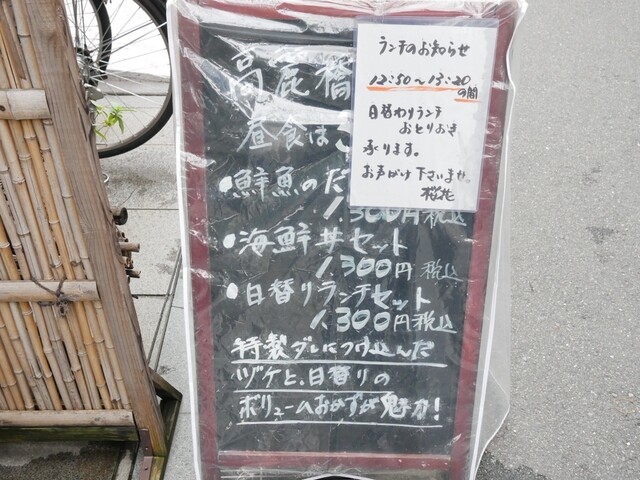 ランチのお知らせ
12:50〜13:20
の間
日替わりランチ
おとりおき
承ります。
お声がけ下さいませ。
桜花
高麗橋
昼食は
・鮮魚のだ
1,300円税込
・海鮮丼セット
1,300円税込
・日替りランチセット
1,300円税込
特製ダレにつけ込んだ
ヅケと、日替りの
ボリュームおかずが魅力!